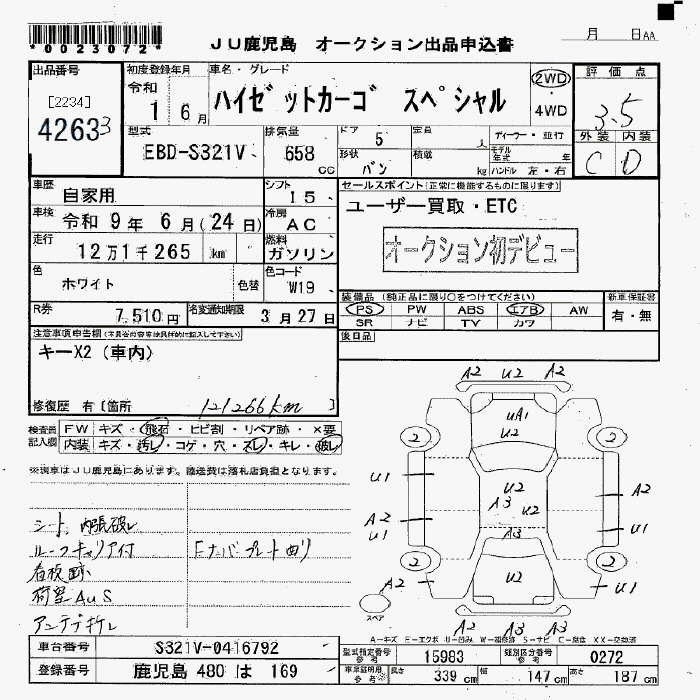 *0023072*
JU鹿児島 オークション出品申込書
月 日AA
出品番号
[2234]
42633
初度登録年月
令和
1 6月
車名・グレード
ハイゼットカーゴ スペシャル
2WD
4WD
評価点
3.5
外装 内装
C D
型式
EBD-S321V
排気量
658 cc
ドア 5
定員
形状 バン
積載 kg
ディーラー・並行
モデル年式 年
ハンドル 左・右
車歴 自家用
シフト I5
車検 令和 9年 6月(24日)
冷房 AC
走行 12万1千265 km
燃料 ガソリン
色 ホワイト 色替
色コード W19
R券 7,510円
名変通知期限 3月27日
セールスポイント(正常に機能するものに限ります)
ユーザー買取・ETC
オークション初デビュー
装備品(純正品に限り○をつけてください)
PS PW ABS エアB AW
SR ナビ TV カワ
新車保証書
有・無
後日品
注意事項申告欄(不具合の箇所は具体的に記入して下さい)
キーX2(車内)
修復歴 有[箇所 121266km ]
検査員記入欄
FW キズ・飛石・ヒビ割・リペア跡・×要
内装 キズ・汚レ・コゲ・穴・スレ・キレ・破レ
※実車はJU鹿児島にあります。陸送費は落札店負担となります。
シート、内張破レ
ルーフキャリア付 Fナンバープレート曲り
看板跡
荷室AuS
アンテナ折レ
A2 U2 A2
UA1
U2
2 2
U1
U2
A3 U2
A2
A2
U1
U1
A3
2 2
A2 U2 U1
スペア
A2 A3 A3
A-キズ E-エクボ U-凹み W-補修跡 S-サビ C-腐食 XX-交換済
車台番号 S321V-0416792
登録番号 鹿児島 480 は 169
型式指定番号 参考 15983
類別区分番号 参考 0272
車庫証明用 参考
長さ 339 cm
幅 147 cm
高さ 187 cm